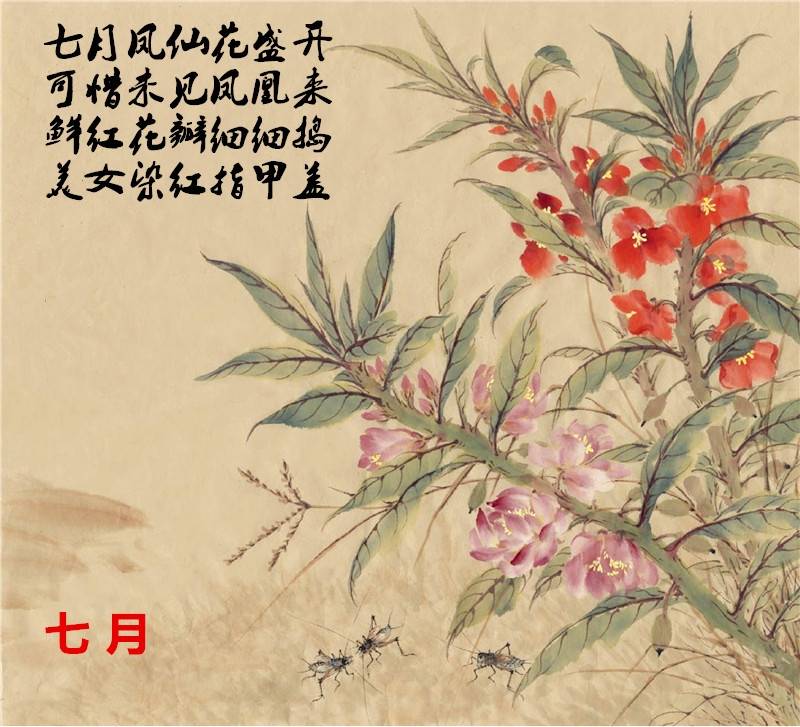 七月凤仙花盛开
可惜未见凤凰来
鲜红花瓣细细捣
美女染红指甲盖
七月